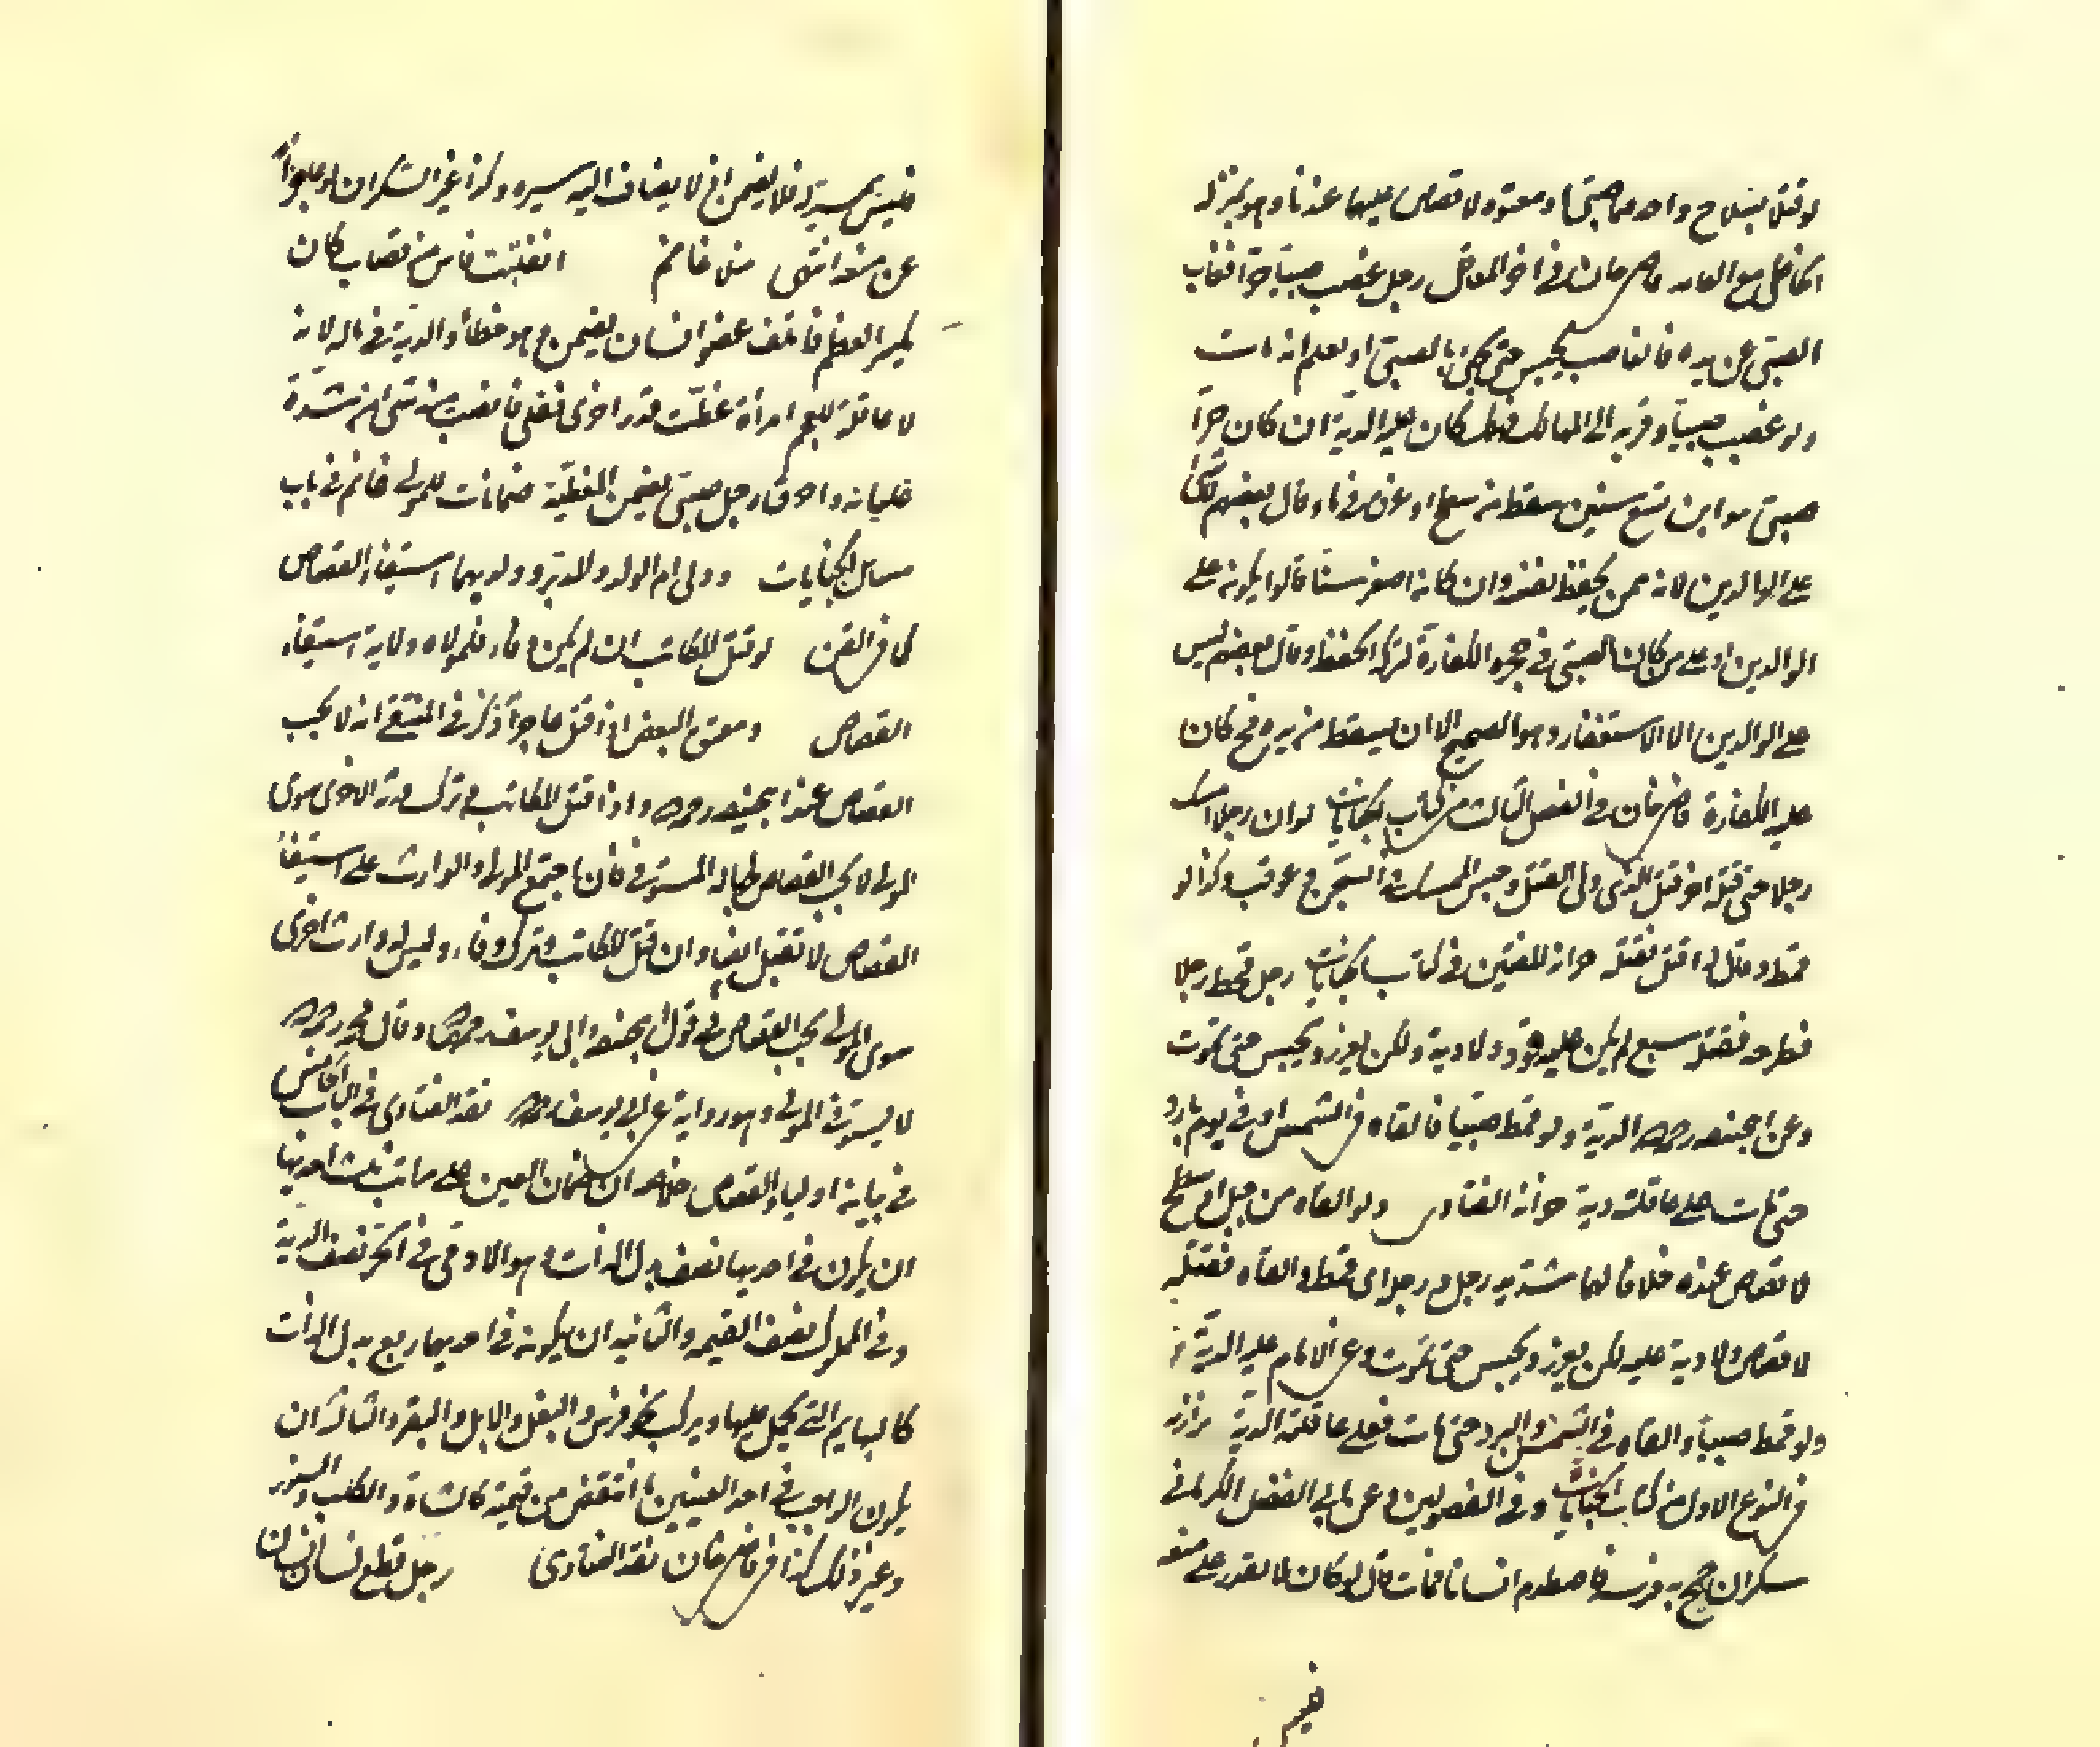 لو قتلا بسلاح واحدهما صبي او معتوه لا قصاص عليهما عندنا وهو بمنزلة
الخاطئ مع العامد قاضي خان في اخر المعاقل رجل غصب صبيا حرا فغاب
الصبي عن يده فالغاصب يحبس حتى يجئ بالصبي او يعلم انه مات
ولو غصب صبيا وقربه الى المهالك فهلك كان عليه الدية ان كان حرا
صبي هو ابن تسع سنين سقط من سطح او غرق في ماء وقال بعضهم لا شئ
على الوالدين لانه ممن يحفظ نفسه وان كان اصغر سنا قالوا يكون على
الوالدين او على من كان الصبي في حجره الكفارة لترك الحفظ وقال بعضهم ليس
على الوالدين الا الاستغفار وهو الصحيح الا ان يسقط من يده فح كان
عليه الكفارة قاضي خان في الفصل الثالث من كتاب الجنايات لو ان رجلا امسك
رجلا حتى قتله اخر قتل الذي ولى القتل وحبس الممسك في السجن وعوقب وكذا لو
قمط وقال لاخر اقتل فقتله خزانة المفتين في كتاب الجنايات رجل قمط رجلا
فطرحه فقتله سبع لم يكن عليه قود ولا دية ولكن يعزر ويحبس حتى يموت
وعن ابيحنيفه رحمه الله الدية ولو قمط صبيا فالقاه في الشمس او في يوم بارد
حتى مات على عاقلته دية خزانة الفتاوى ولو القاه من جبل او سطح
لا قصاص عنده خلافا لهما شد يد رجل ورجله اى قمط والقاه فقتله
لا قصاص ولا دية عليه لكن يعزر ويحبس حتى يموت وعن الامام عليه الدية
ولو قمط صبيا والقاه في الشمس والبرد حتى مات فعلى عاقلته الدية بزازيه
في النوع الاول من كتاب الجنايات وفي الفصولين وعن ابي الفضل الكرماني
سكران جمح به فرسه فاصطدم انسانا فمات قال لو كان لا يقدر على منعه
فليس
فليس بمسير له فلا يضمن اذ لا يضاف اليه سيره وكذا غير السكران لو عاجزا
عن منعه انتهى منلا غانم انفلتت فاس من قصاب كان
يكسر العظم فاتلف عضو انسان يضمن وهو خطأ والدية في ماله لانه
لا عاقلة للعجم امرأة غطت قدر اخرى فغلى فانصب منه شئ من شدة
غليانه واحرق رجل صبي يضمن المغطية ضمانات للمولى غانم في باب
مسائل الجنايات وولى ام الولد والمدبر وولديهما استيفاء القصاص
كما في القن لو قتل المكاتب ان لم يكن وفاء فلمولاه ولاية استيفاء
القصاص ومعتق البعض اذا قتل عاجزا ذكر في المنتقى انه لا يجب
القصاص عند ابيحنيفه رحمه الله واذا قتل المكاتب وترك ورثة اخرى سوى
المولى لا يجب القصاص لجهالة المستوفي فان اجتمع المولى والوارث على استيفاء
القصاص لا تقبل ايضا وان قتل المكاتب وترك وفاء وليس له وارث اخرى
سوى المولى يجب القصاص في قول ابيحنيفه وابى يوسف رحمهما الله وقال محمد رحمه الله
لا يستوفي المولى وهو رواية عن ابي يوسف رحمه الله نقد الفتاوى في الباب الخامس
في بيان اولياء القصاص خلاصه ان ضمان العين على مراتب ثلث احديها
ان يكون في احديها نصف بدل الذات وهو الآدمي في الحر نصف الدية
وفي المملوك نصف القيمه والثانيه ان يكون في احديهما ربع بدل الذات
كالبهايم التي يحمل عليها ويركب نحو فرس والبغل والابل والبقر والثالثة ان
يكون الواجب في احد العينين ما انتقص من قيمته كالشاة والكلب والسنور
وغير ذلك كذا في قاضي خان نقد الفتاوى رجل قطع لسان انسان